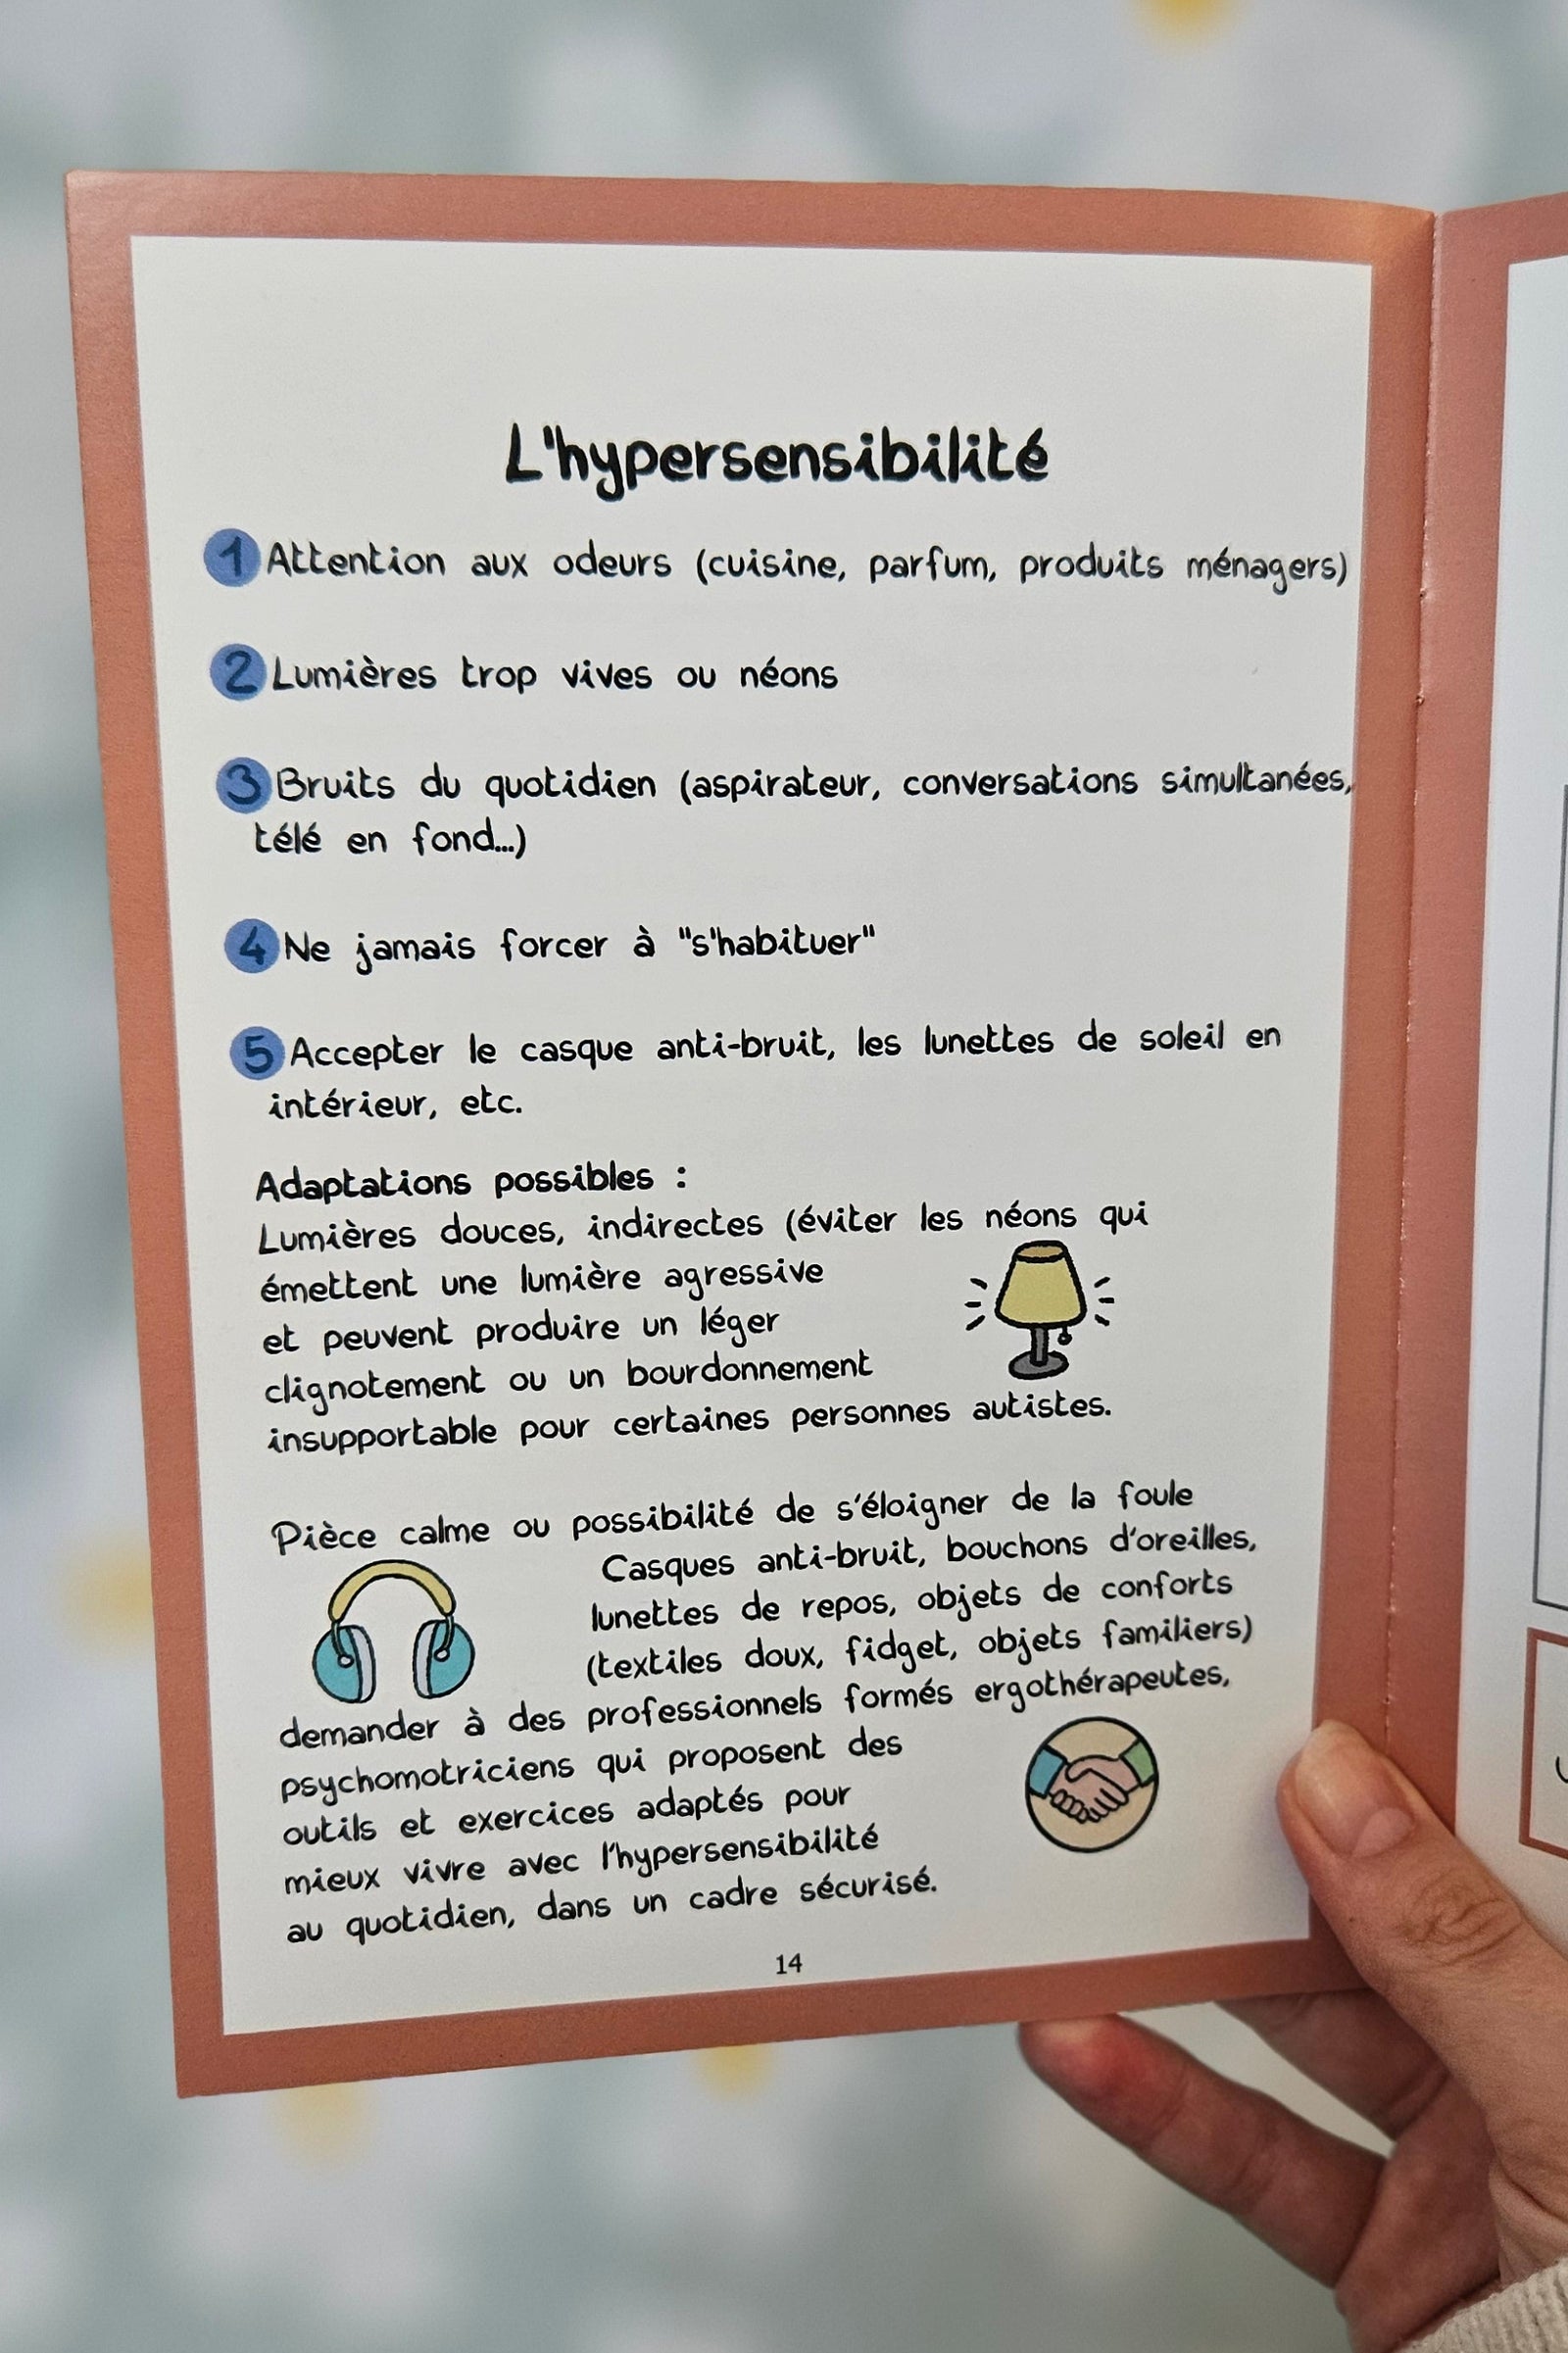 L'hypersensibilité
1 Attention aux odeurs (cuisine, parfum, produits ménagers)
2 Lumières trop vives ou néons
3 Bruits du quotidien (aspirateur, conversations simultanées,
télé en fond...)
4 Ne jamais forcer à "s'habituer"
5 Accepter le casque anti-bruit, les lunettes de soleil en
intérieur, etc.
Adaptations possibles :
Lumières douces, indirectes (éviter les néons qui
émettent une lumière agressive
et peuvent produire un léger
clignotement ou un bourdonnement
insupportable pour certaines personnes autistes.
Pièce calme ou possibilité de s'éloigner de la foule
Casques anti-bruit, bouchons d'oreilles,
lunettes de repos, objets de conforts
(textiles doux, fidget, objets familiers)
demander à des professionnels formés ergothérapeutes,
psychomotriciens qui proposent des
outils et exercices adaptés pour
mieux vivre avec l'hypersensibilité
au quotidien, dans un cadre sécurisé.
14